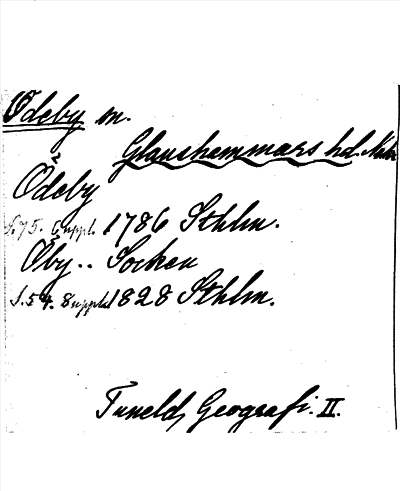 Ödeby m.
Glanshammars hd. När
Ödeby
s. 75. 6 uppl. 1786 Sthlm.
Öby.. Socken
s. 54. 8 uppl. 1828 Sthlm.
Tuneld, Geografi. II.